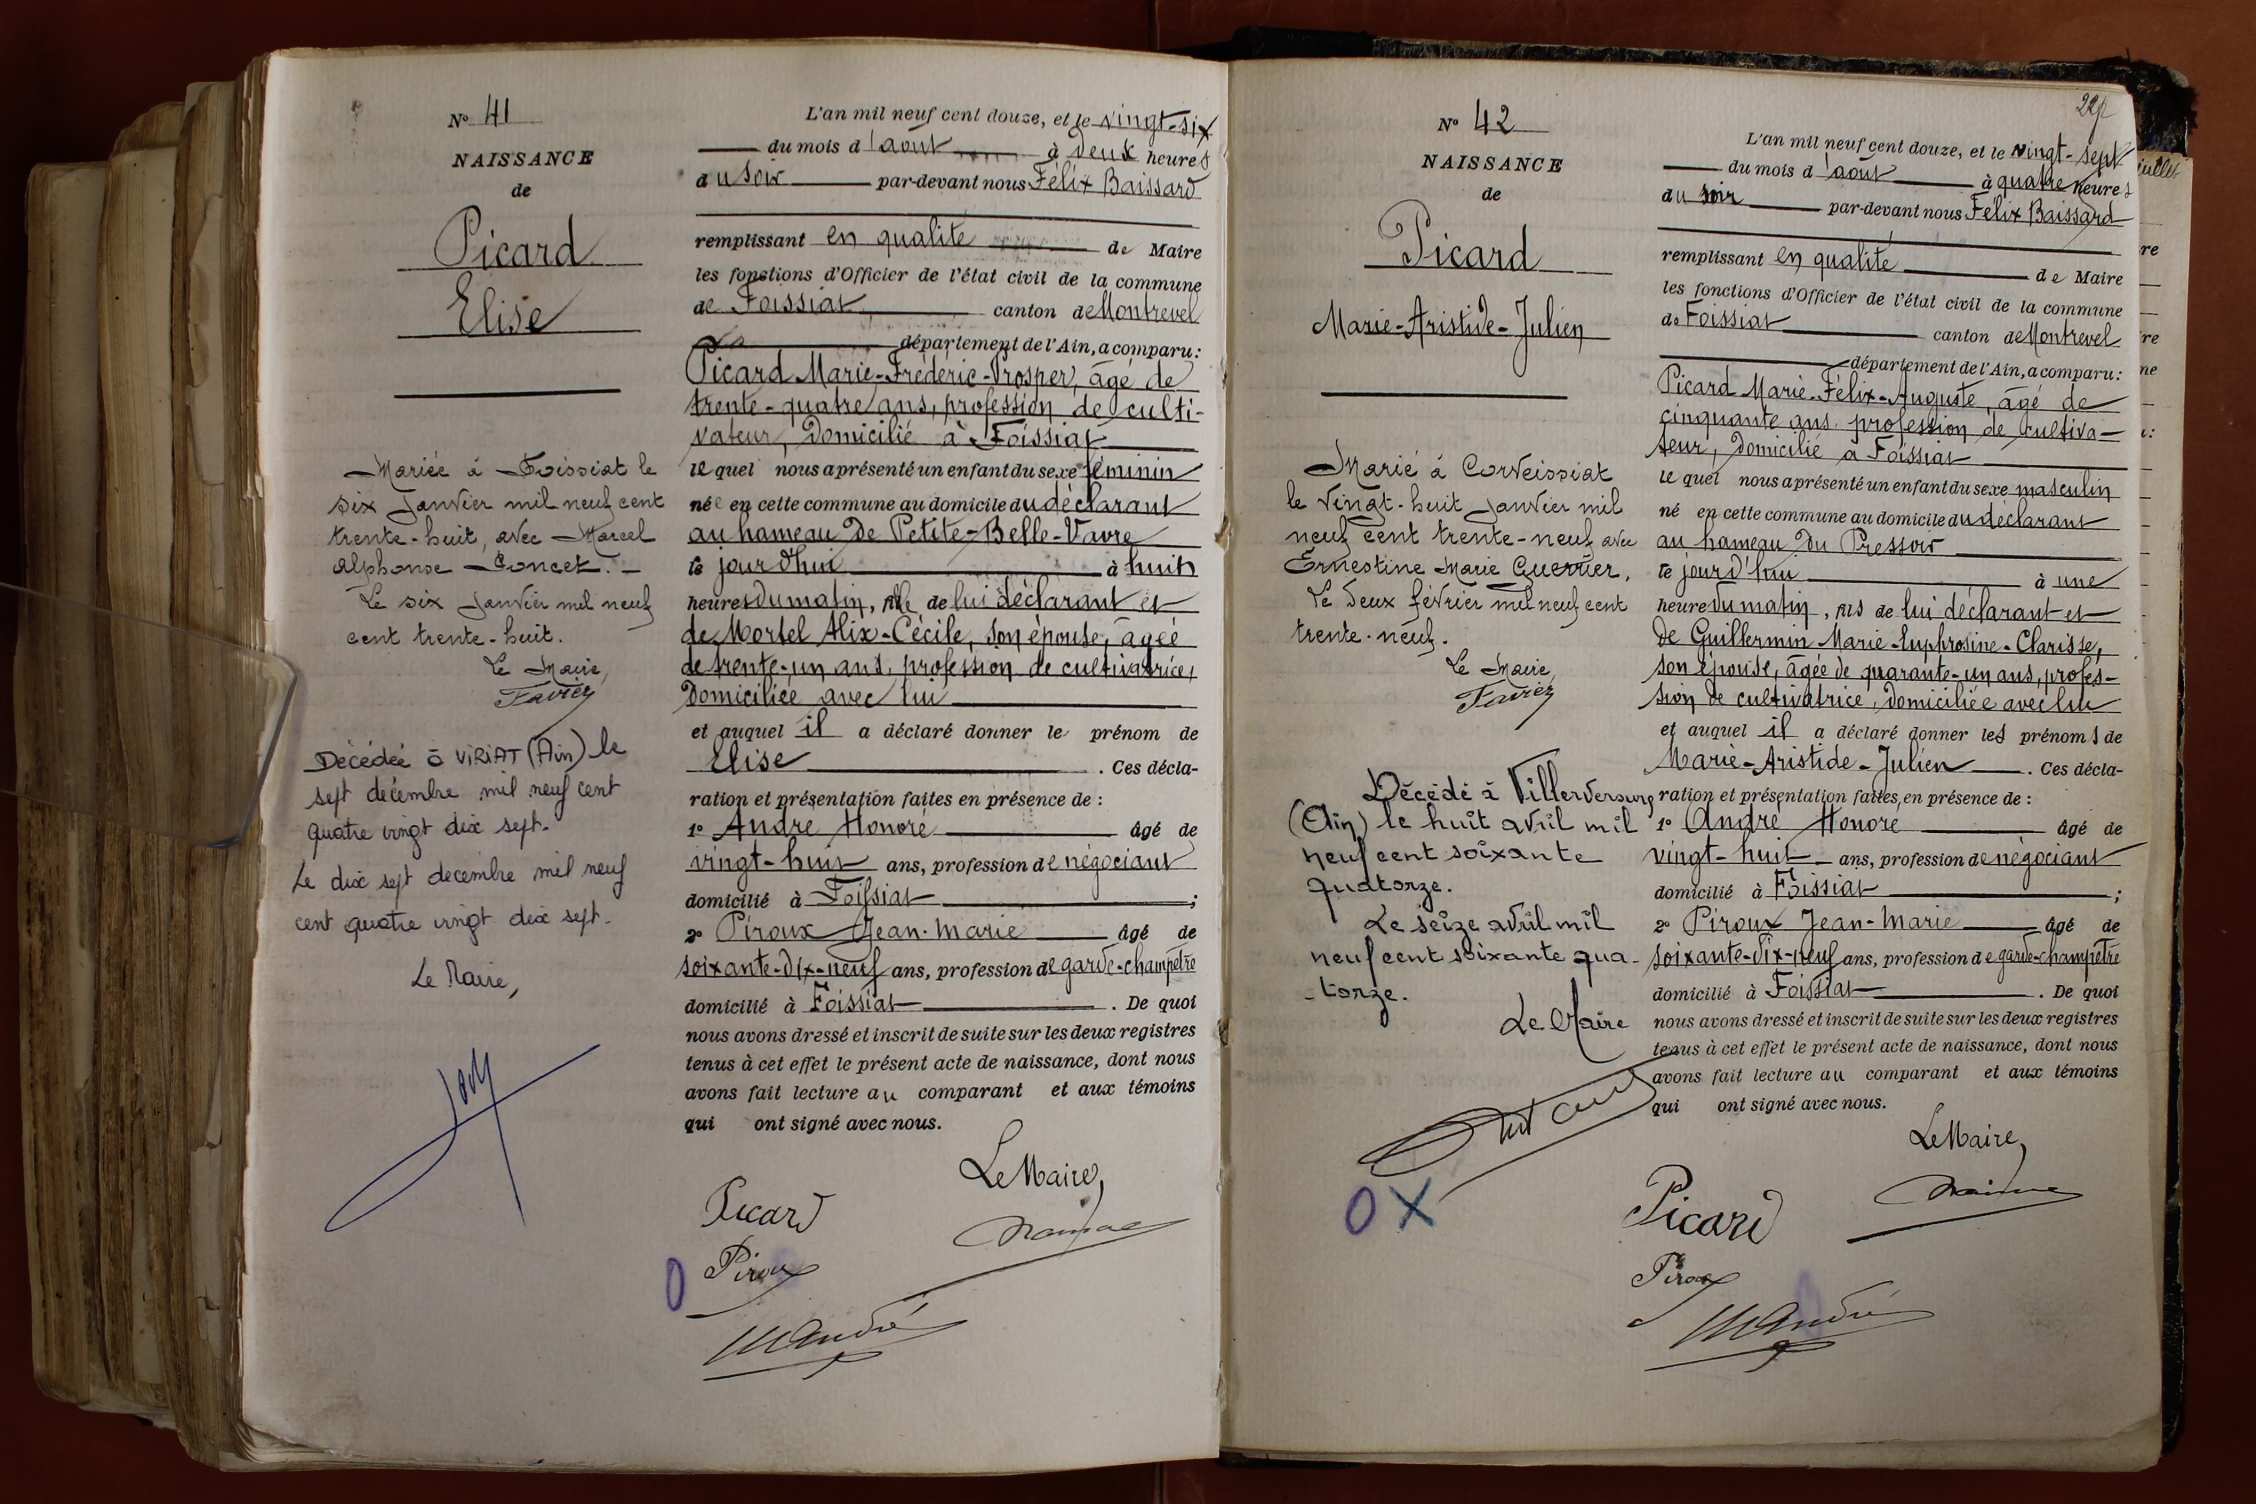 N° 41
NAISSANCE
de
Picard
Elise
Mariée à Foissiat le
six Janvier mil neuf cent
trente-huit, avec Marcel
Alphonse Poncet. —
Le six Janvier mil neuf
cent trente-huit.
Le Maire,
Favier
Décédée à VIRIAT (Ain) le
sept décembre mil neuf cent
quatre vingt dix sept.
Le dix sept décembre mil neuf
cent quatre vingt dix sept.
Le Maire,
L'an mil neuf cent douze, et le vingt-six
du mois d'août à deux heures
du soir par-devant nous Félix Baissard
remplissant en qualité de Maire
les fonctions d'Officier de l'état civil de la commune
de Foissiat canton de Montrevel
département de l'Ain, a comparu:
Picard Marie-Frédéric-Prosper, âgé de
trente-quatre ans, profession de culti-
vateur, domicilié à Foissiat
lequel nous a présenté un enfant du sexe féminin
née en cette commune au domicile du déclarant
au hameau de Petite-Belle-Vavre
le jour d'hui à huit
heures du matin, fille de lui déclarant et
de Mortel Alix-Cécile, son épouse, âgée
de trente-un ans, profession de cultivatrice,
domiciliée avec lui
et auquel il a déclaré donner le prénom de
Elise . Ces décla-
ration et présentation faites en présence de :
1° André Honoré âgé de
vingt-huit ans, profession de négociant
domicilié à Foissiat ;
2° Piroux Jean-Marie âgé de
soixante-dix-neuf ans, profession de garde-champêtre
domicilié à Foissiat . De quoi
nous avons dressé et inscrit de suite sur les deux registres
tenus à cet effet le présent acte de naissance, dont nous
avons fait lecture au comparant et aux témoins
qui ont signé avec nous.
Le Maire,
Picard
Piroux
H André
N° 42
NAISSANCE
de
Picard
Marie-Aristide-Julien
Marié à Corveissiat
le vingt-huit Janvier mil
neuf cent trente-neuf avec
Ernestine Marie Guerrier,
Le deux février mil neuf cent
trente-neuf.
Le Maire,
Favier
Décédé à Villereversure
(Ain) le huit avril mil
neuf cent soixante
quatorze.
Le seize avril mil
neuf cent soixante qua-
-torze.
Le Maire
O X
L'an mil neuf cent douze, et le vingt-sept
du mois d'août à quatre heures
du soir par-devant nous Félix Baissard
remplissant en qualité de Maire
les fonctions d'Officier de l'état civil de la commune
de Foissiat canton de Montrevel
département de l'Ain, a comparu:
Picard Marie-Félix-Auguste, âgé de
cinquante ans, profession de cultiva-
teur, domicilié à Foissiat
lequel nous a présenté un enfant du sexe masculin
né en cette commune au domicile du déclarant
au hameau du Pressoir
le jour d'hui à une
heure du matin, fils de lui déclarant et
de Guillermin Marie-Euphrosine-Clarisse,
son épouse, âgée de quarante-un ans, profes-
sion de cultivatrice, domiciliée avec lui
et auquel il a déclaré donner les prénoms de
Marie-Aristide-Julien . Ces décla-
ration et présentation faites en présence de :
1° André Honoré âgé de
vingt-huit ans, profession de négociant
domicilié à Foissiat ;
2° Piroux Jean-Marie âgé de
soixante-dix-neuf ans, profession de garde-champêtre
domicilié à Foissiat . De quoi
nous avons dressé et inscrit de suite sur les deux registres
tenus à cet effet le présent acte de naissance, dont nous
avons fait lecture au comparant et aux témoins
qui ont signé avec nous.
Le Maire,
Picard
Piroux
H André